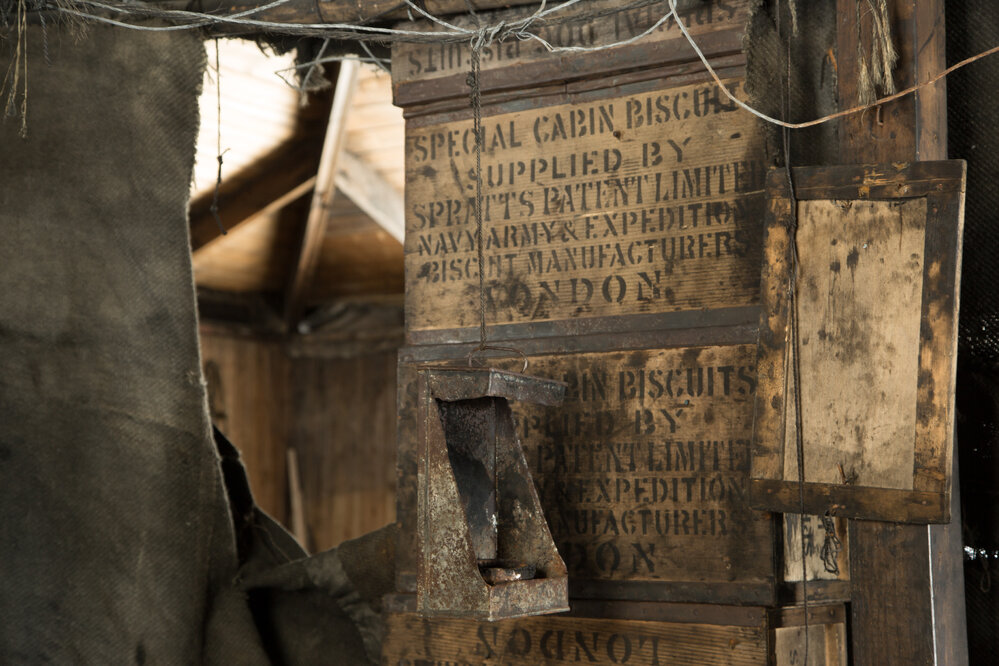 SPECIAL CABIN BISCUIT
SUPPLIED BY
SPRATTS PATENT LIMITE
NAVY ARMY & EXPEDITION
BISCUIT MANUFACTURERS
LONDON
CABIN BISCUITS
PPLIED BY
PATENT LIMITE
& EXPEDITION
NUFACTURERS
DON
LONDON